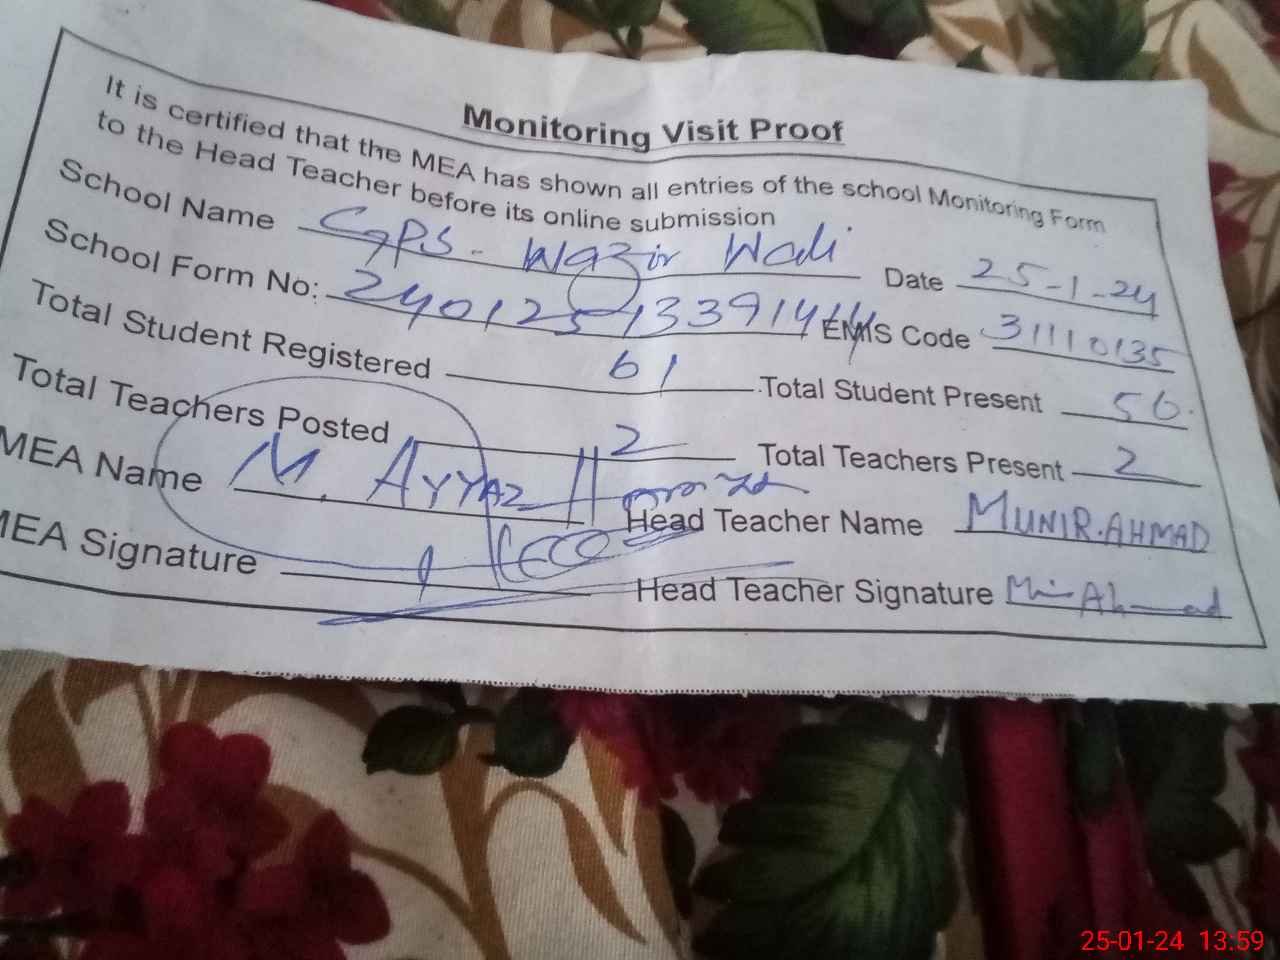 Monitoring Visit Proof
It is certified that the MEA has shown all entries of the school Monitoring Form
to the Head Teacher before its online submission
School Name GPS - Wazir Wali Date 25-1-24
School Form No: 240125133914 EMIS Code 31110135
Total Student Registered 61 Total Student Present 56
Total Teachers Posted 2 Total Teachers Present 2
MEA Name M. AYYAZ Head Teacher Name MUNIR.AHMAD
MEA Signature Head Teacher Signature Ahmad
25-01-24 13:59